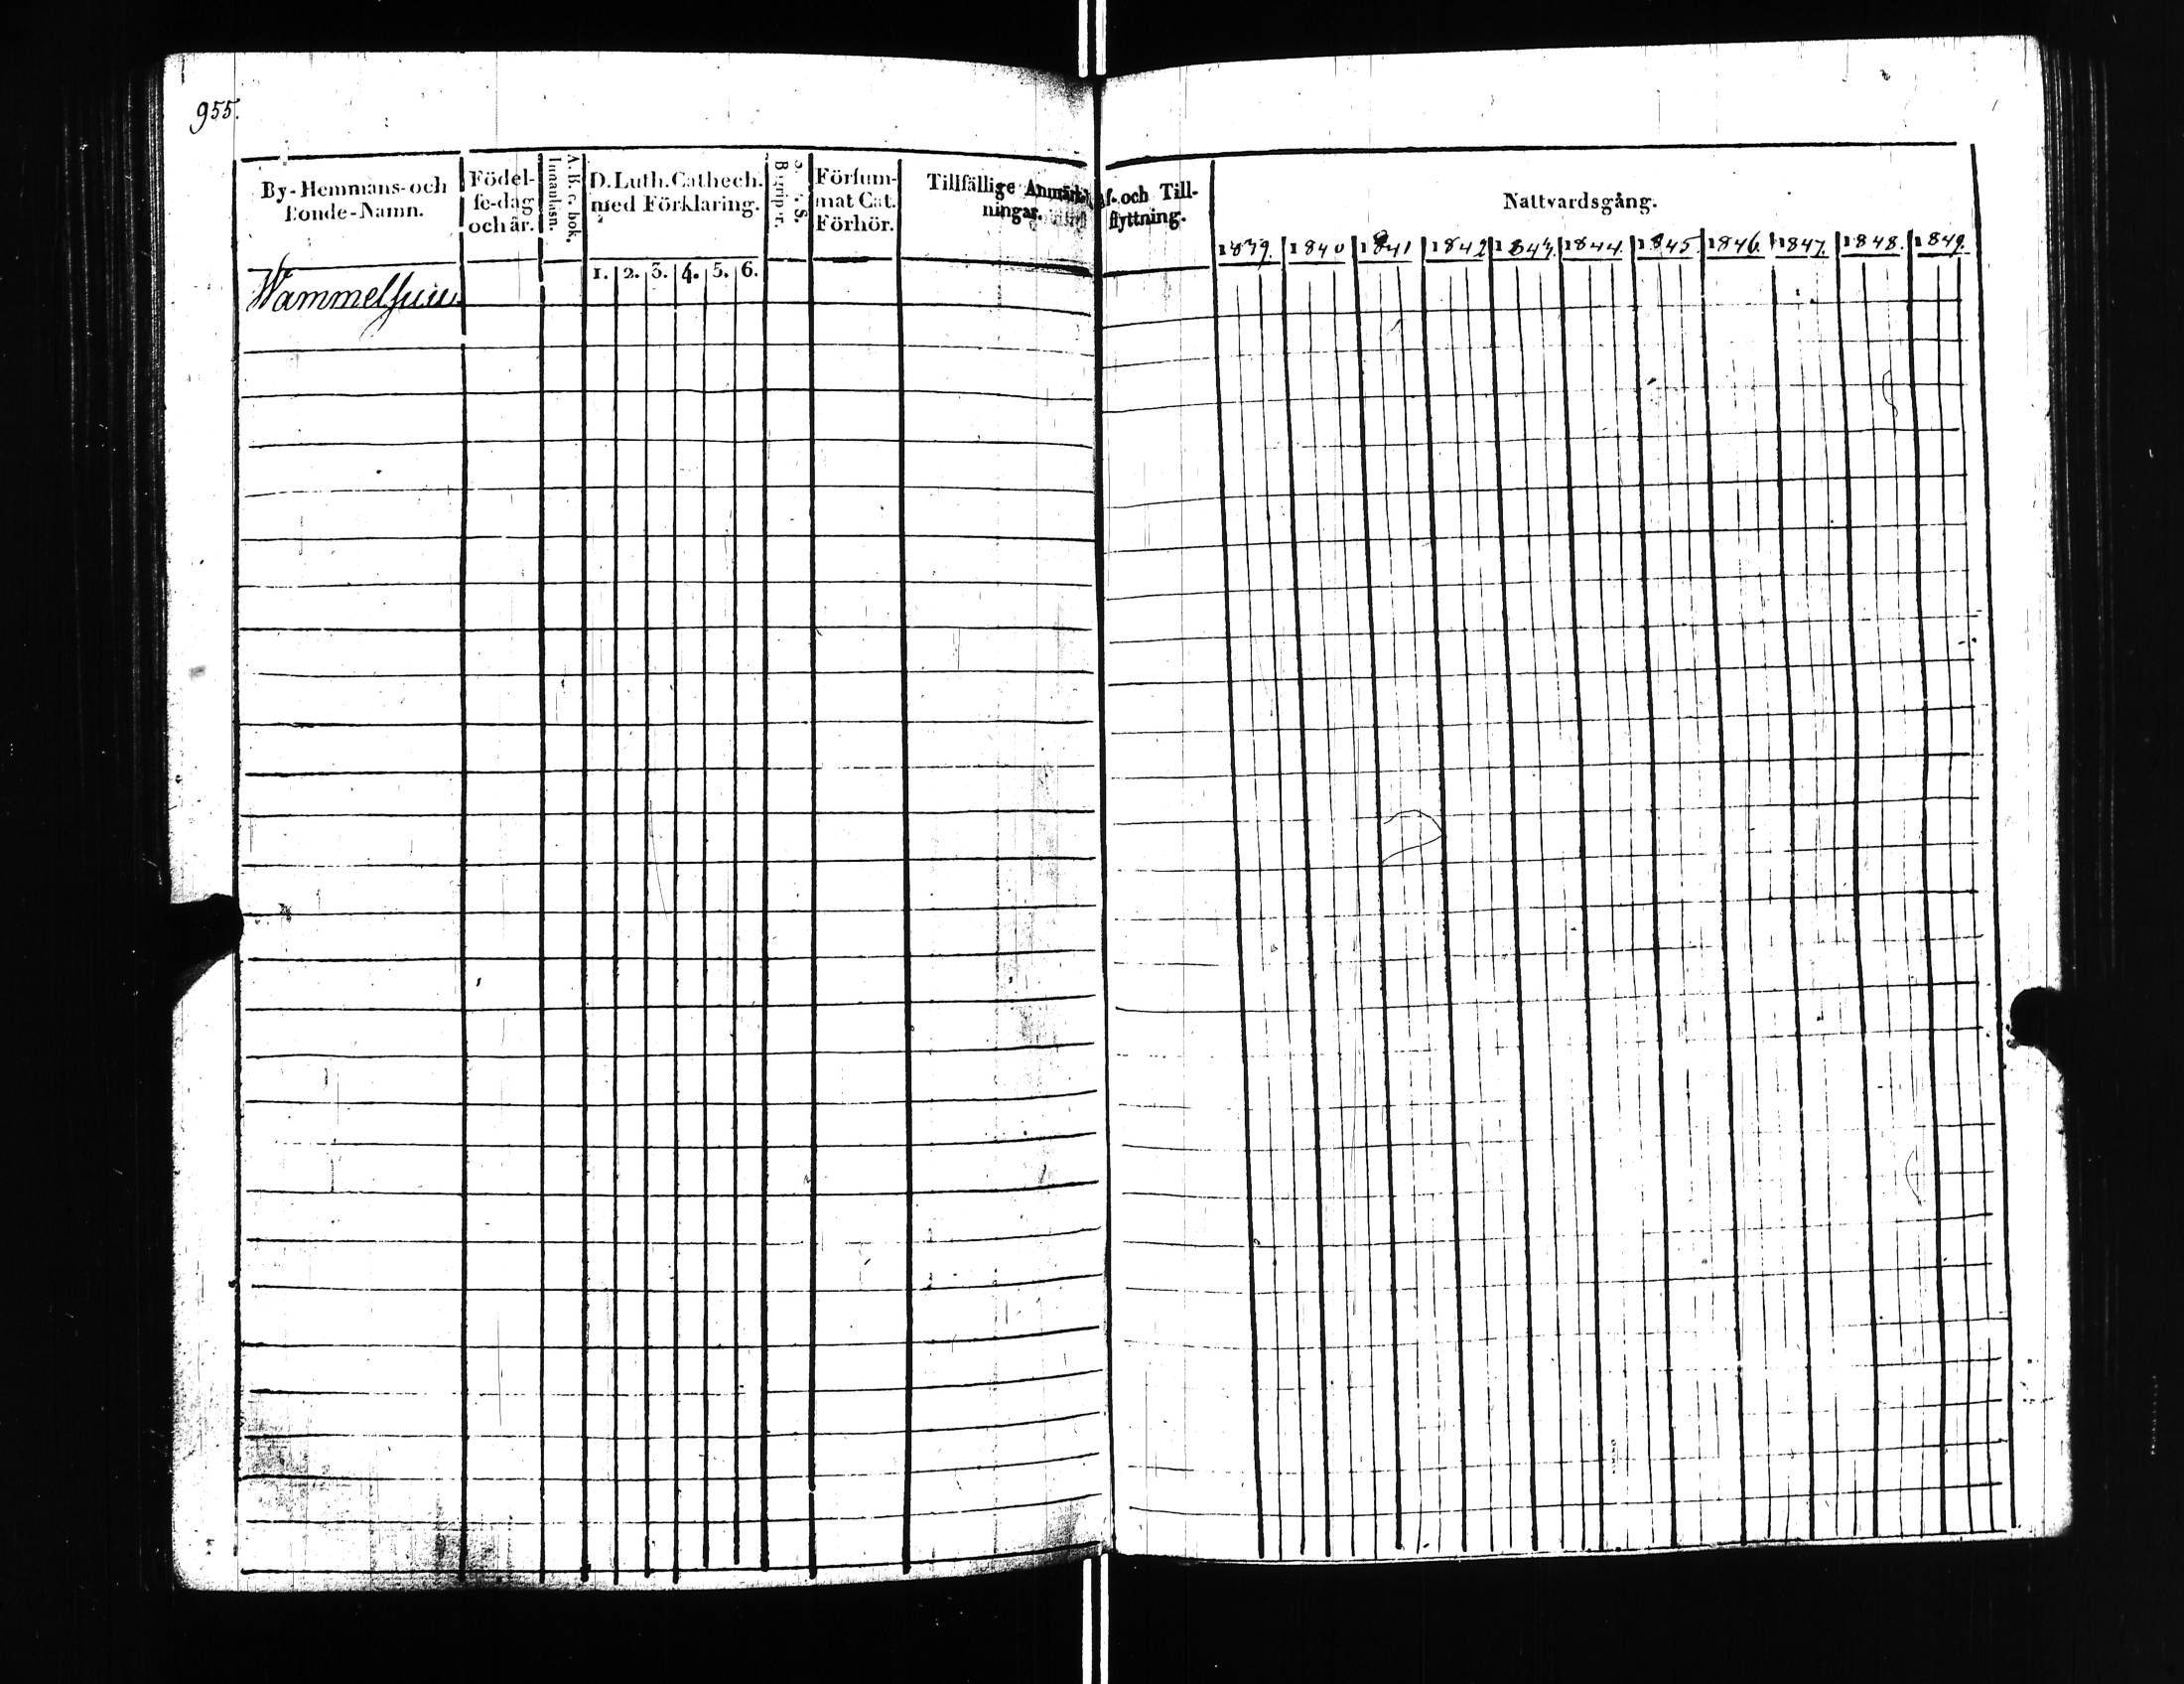 955.
By-Hemmans-och
Bonde-Namn.
Födel-
se-dag
och år.
A. B. c. bok.
Innanläsn.
D. Luth. Cathech.
med Förklaring.
1. 2. 3. 4. 5. 6.
Försum-
mat Cat.
Förhör.
Tillfällige Anmärk-
ningar.
Af- och Till-
flyttning.
Nattvardsgång.
1839. 1840 1841 1842 1843. 1844. 1845. 1846. 1847. 1848. 1849.
Wammelsuu